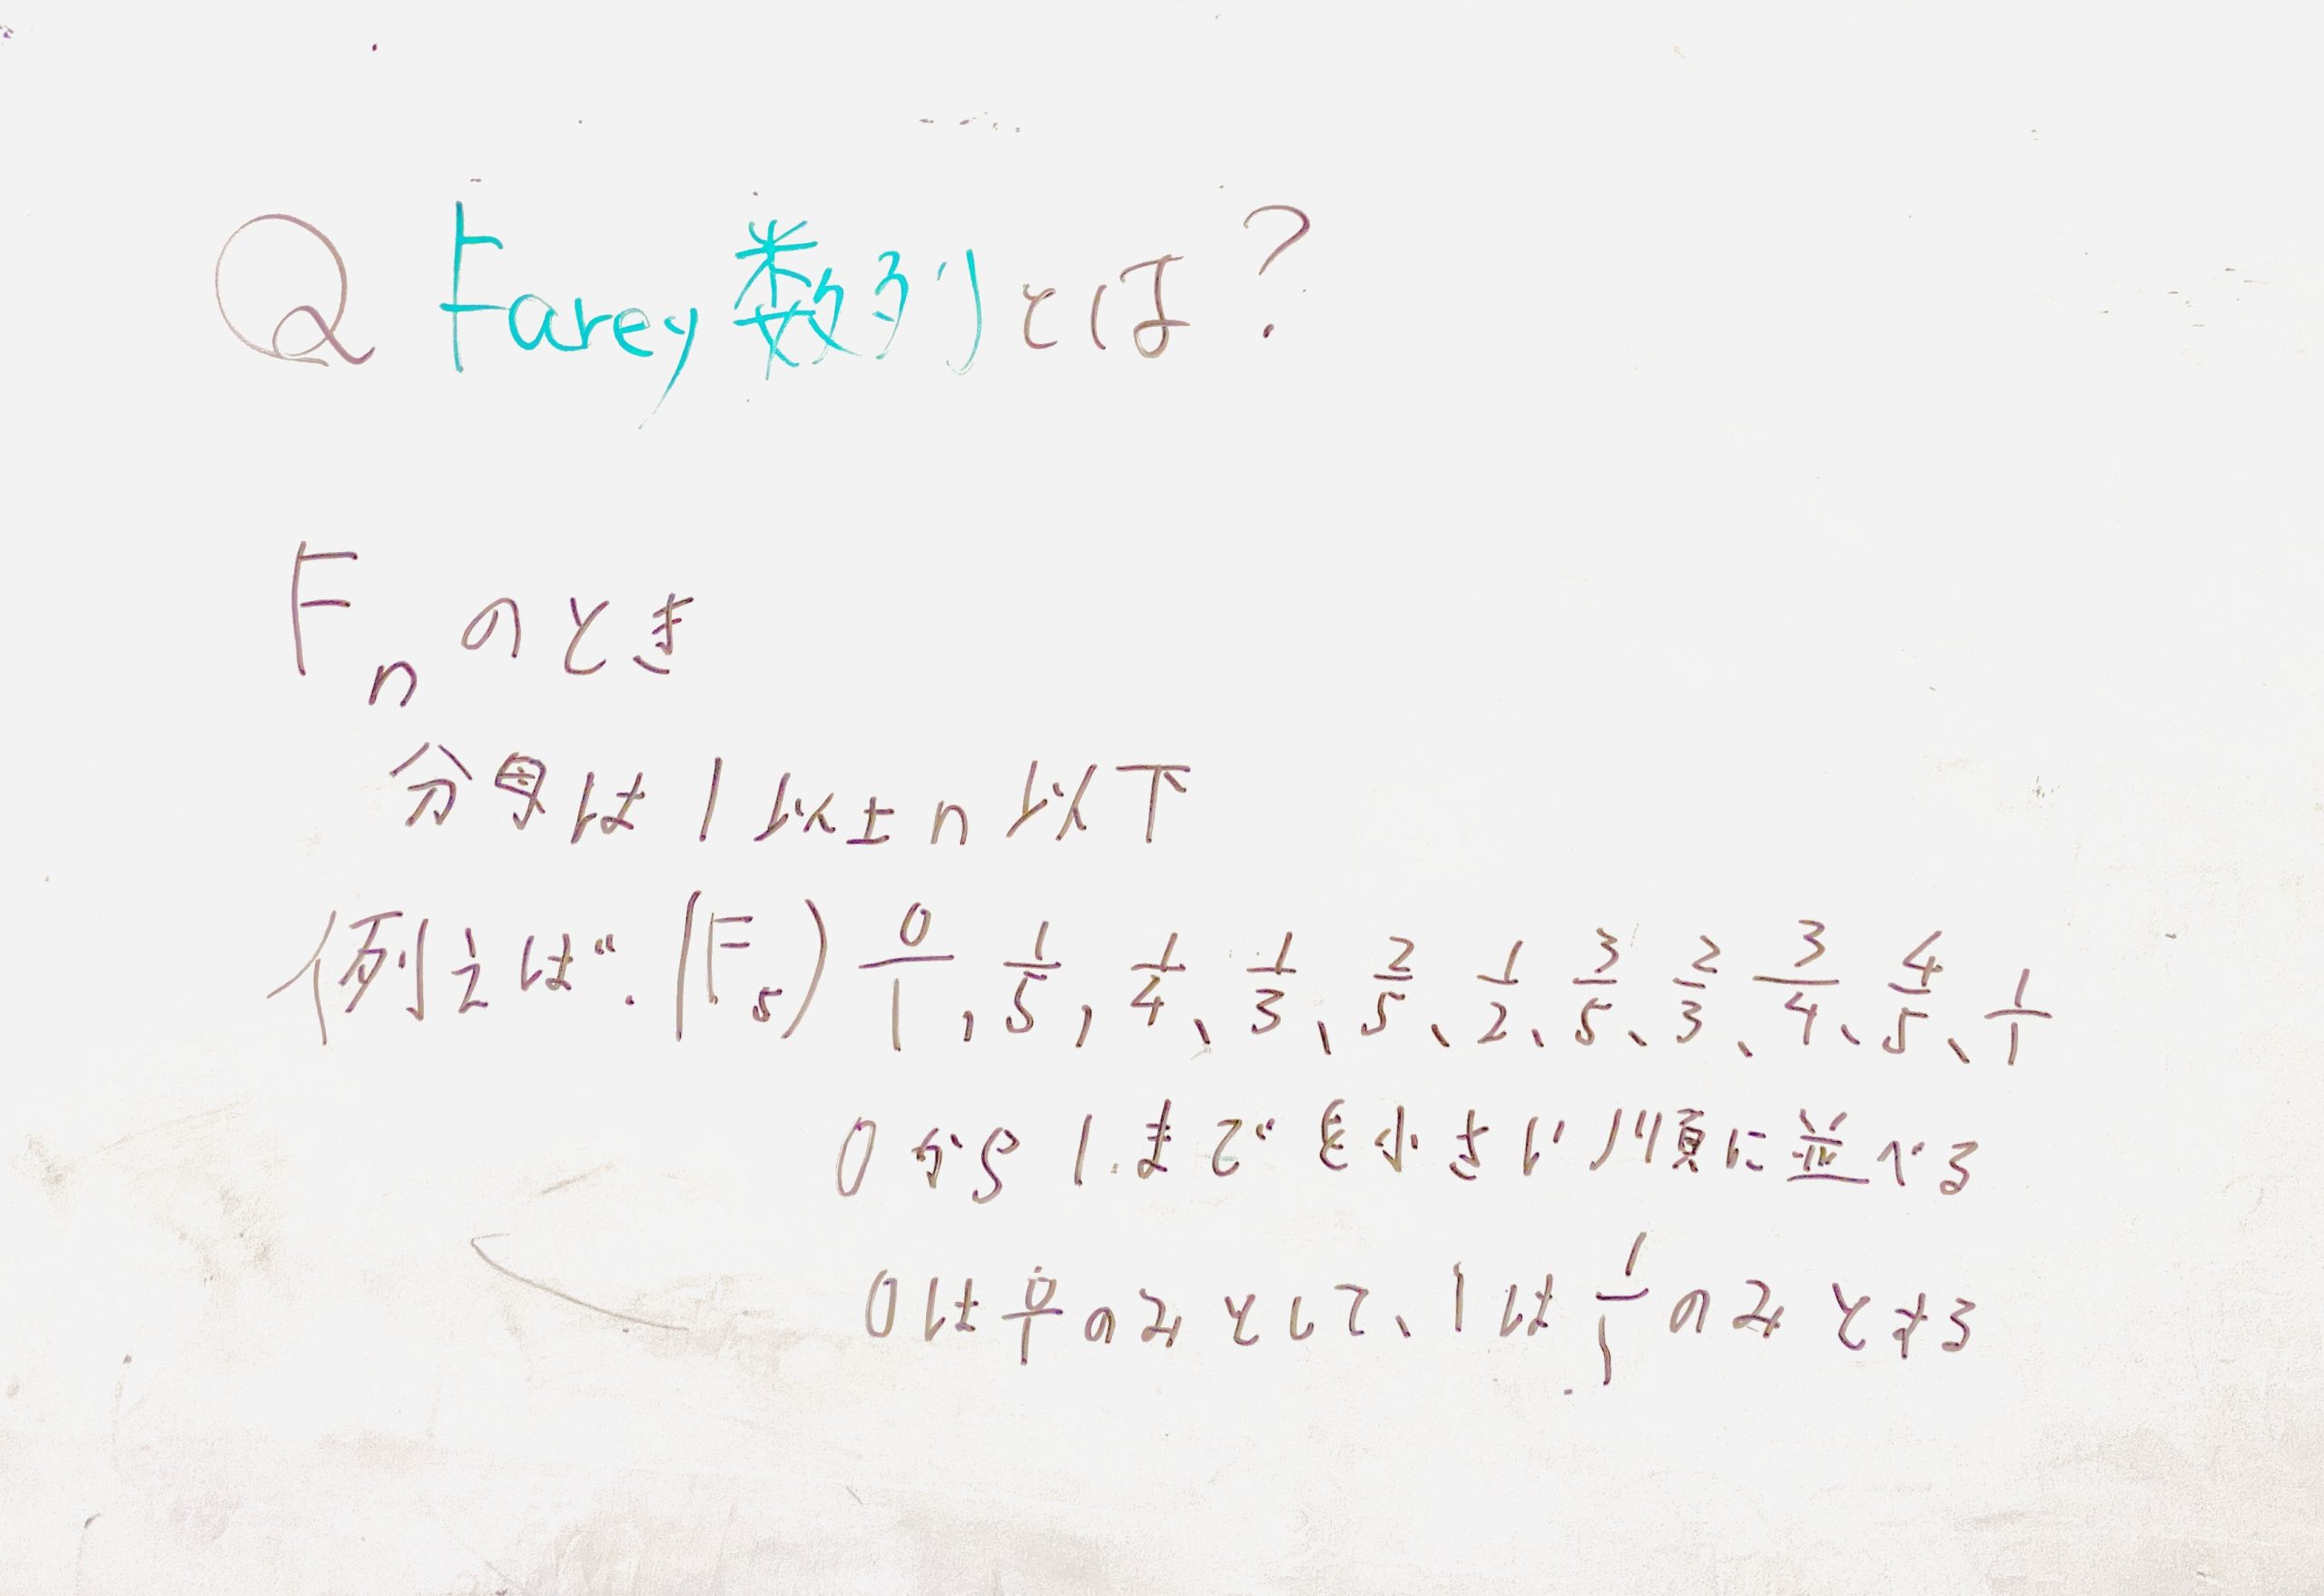 Q Farey数列とは?
Fₙのとき
分母は1以上n以下
例えば.(F₅) 0/1, 1/5, 1/4、1/3、2/5、1/2、3/5、2/3、3/4、4/5、1/1
0から1までを小さい順に並べる
0は0/1のみとして、1は1/1のみとする